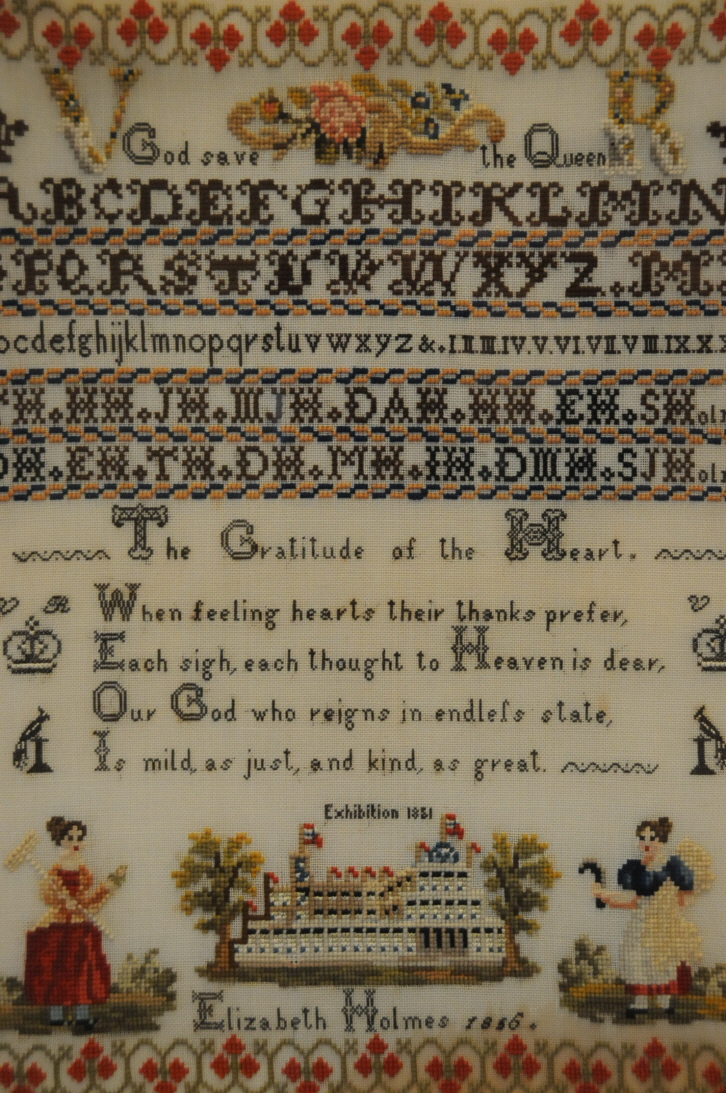 V R
God save the Queen
ABCDEFGHIKLMN
PQRSTUVWXYZ.M
cdefghijklmnopqrstuvwxyz&.I.II.III.IV.V.VI.VII.VIII.IX.X.
H.HH.JH. .DAH.HH.EH.SH
H.EH.TH.DH.MH.IH. .SJH
The Gratitude of the Heart.
V R V
When feeling hearts their thanks prefer,
Each sigh, each thought to Heaven is dear,
Our God who reigns in endleſs state,
Is mild, as just, and kind, as great.
Exhibition 1851
Elizabeth Holmes 1856.